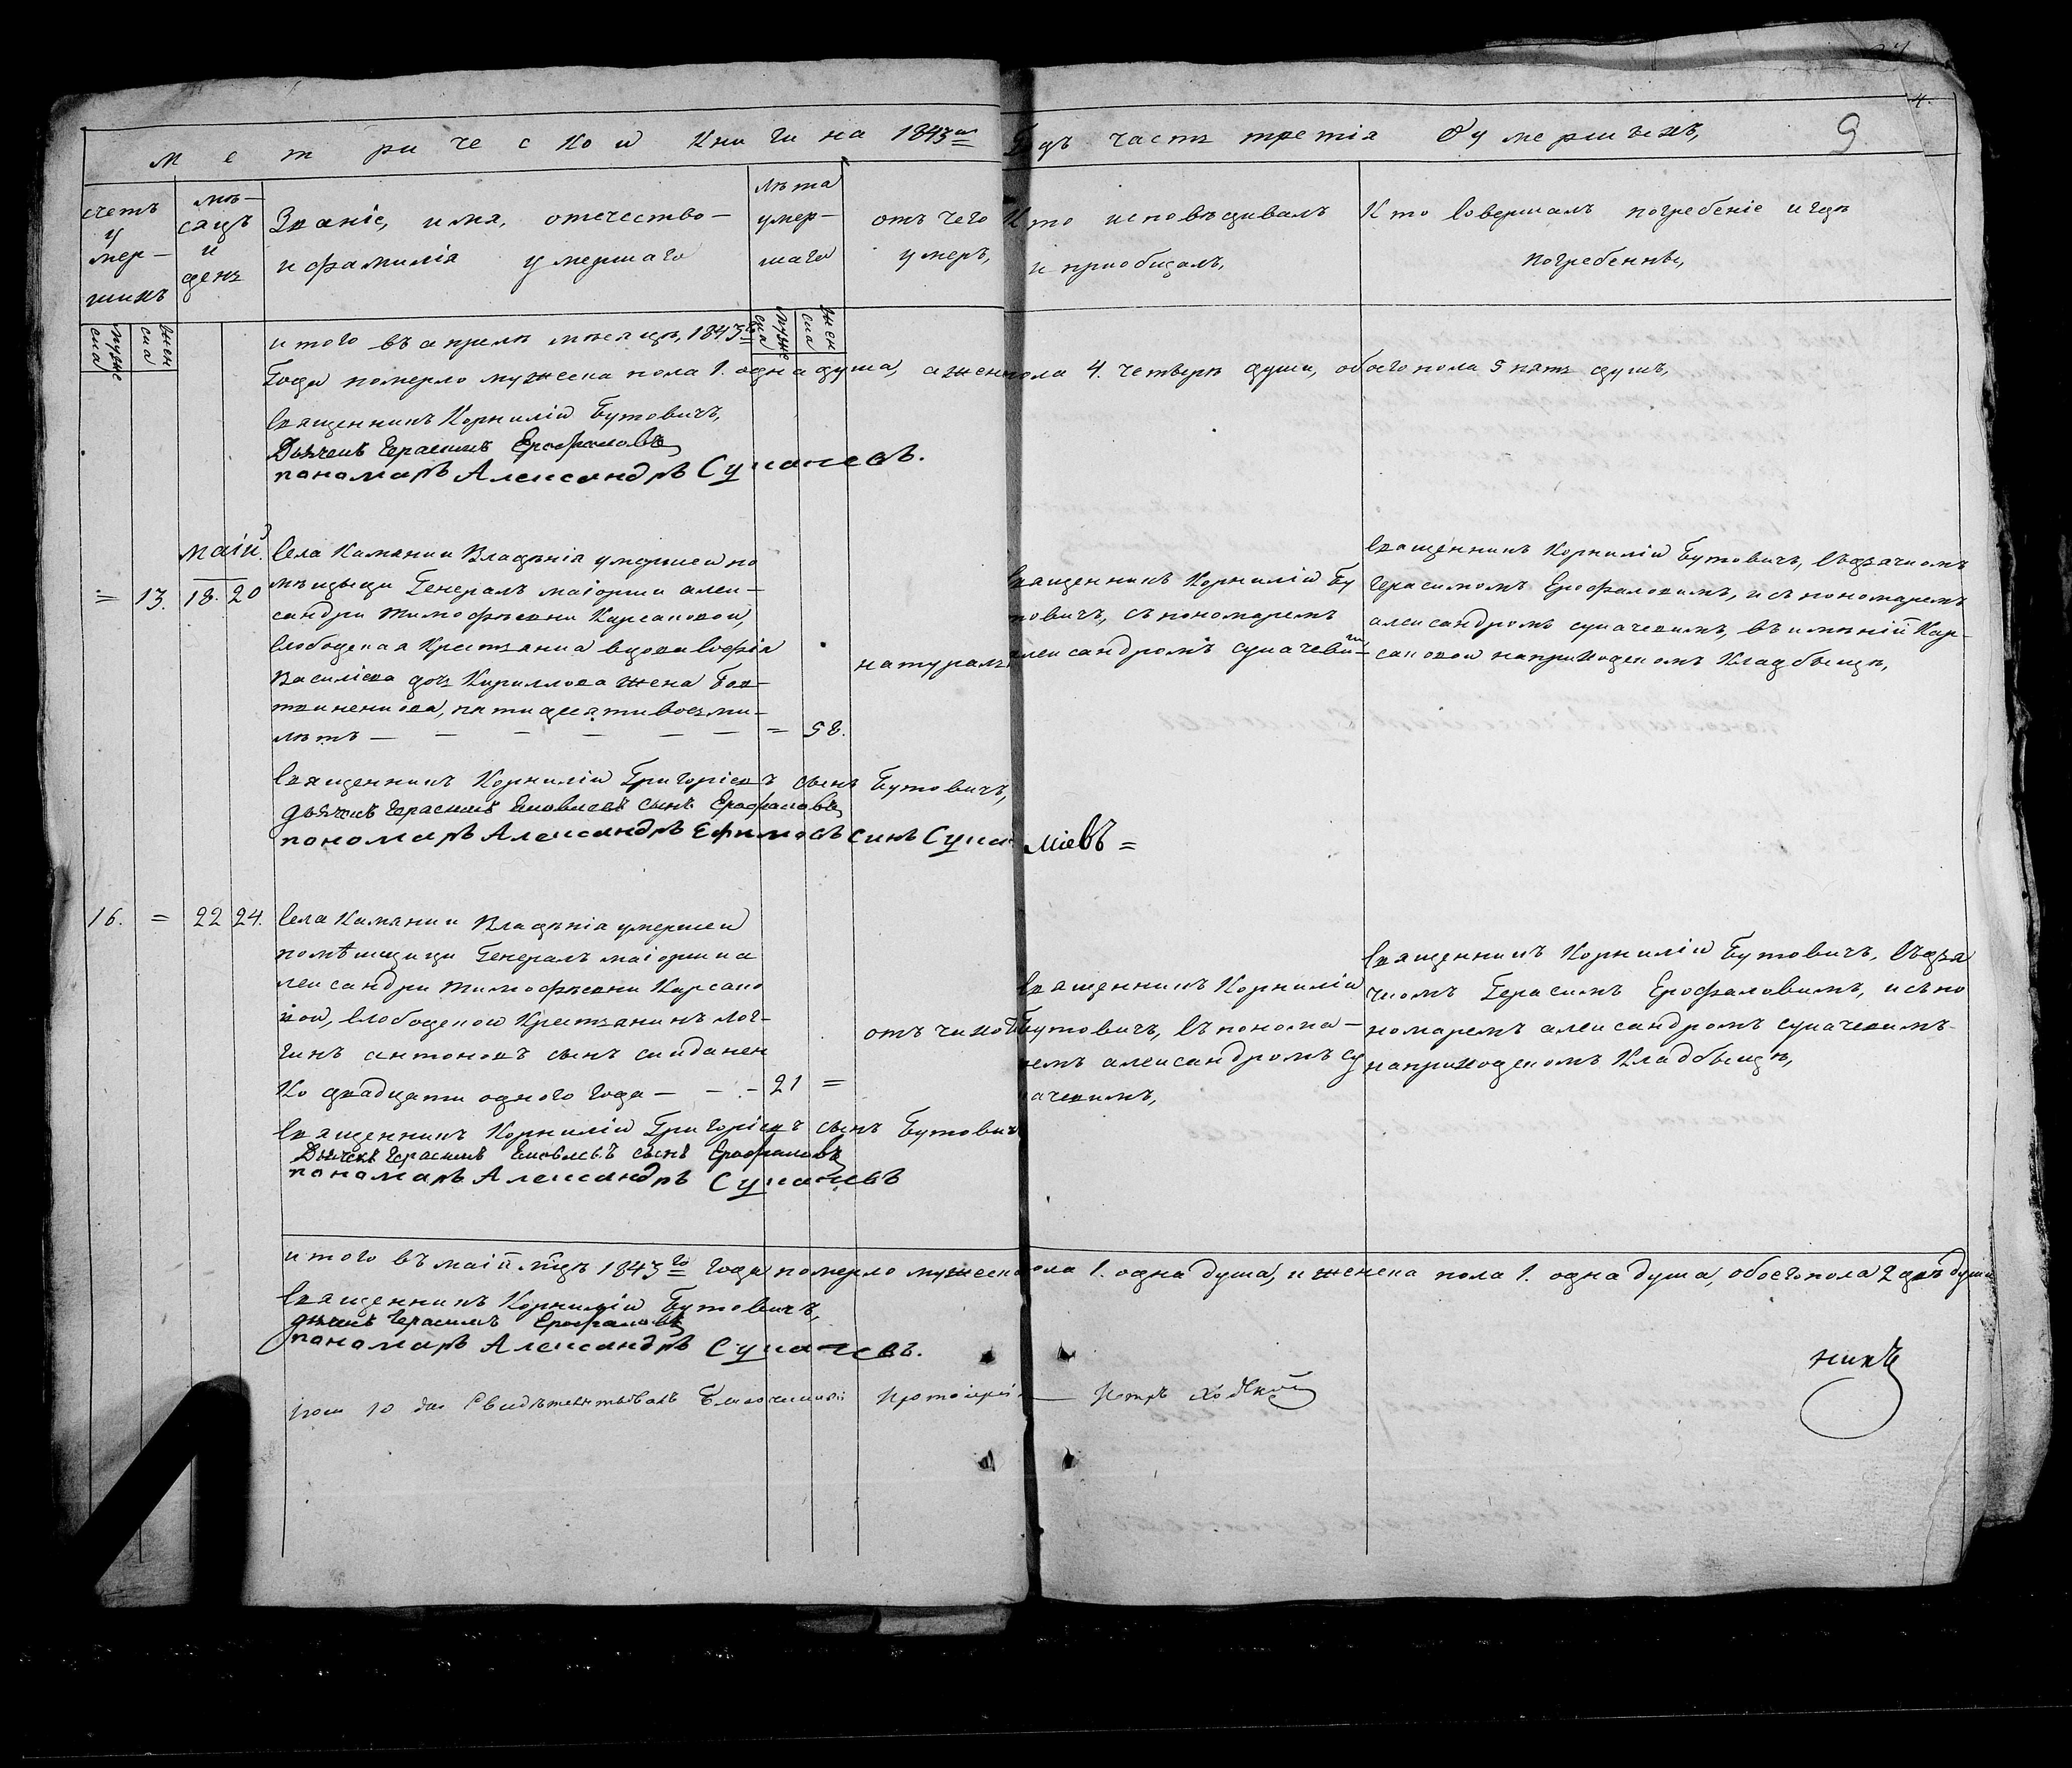 Метрической книги на 1843й Годъ часть третія Оумершихъ, 9
4.
счетъ умершихъ
мѣсяцъ и день
Званіе, имя, отечество и фамилія умершаго
лѣта умершаго
отъ чего умеръ,
Кто исповѣдивалъ и приобщалъ,
Кто совершалъ погребеніе и где погребенны,
мужеска
женска
мужеска
женска
итого въ апрелѣ мѣсяцѣ, 1843го
Года померло мужеска пола 1. одна душа, а жен пола 4. четыри души, обоего пола 5 пять душъ,
Священникъ Корнилій Бутовичъ,
Дьячекъ Герасимъ Ерофаловъ
пономарь Александръ Сукачевъ.
маій.
= 13. 18. 20
Села Камянки Владѣнія умершей по
мѣщыци Генералъ маіорши алек-
сандри Тимофѣевни Карсаковой,
слободская Крестянка вдова Софія
Василіева дочь Кириллова жена
пятидесяти восми-
лѣтъ — — — — — — = 58.
натурал
Священникъ Корнилій Бу
товичъ, съ пономаремъ
александромъ сукачевим
Священникъ Корнилій Бутовичъ, съ дячкомъ
Герасимомъ Ерофаловимъ, и съ пономаремъ
александромъ сукачевимъ, въ имѣній Кар-
саковой на приходскомъ Кладбыщѣ,
Священникъ Корнилій Григоріевъ сынъ Бутовичъ,
дьячекъ Герасимъ Яковлевъ сынъ Ерофаловъ
пономарь Александръ Ефимовъ синъ Сукачіевъ =
16. = 22 24.
Села Камянки Владѣнія умершей
помѣщыци Генералъ маіорши а
лександри Тимофѣевни Карсако
вой, слободской Крестянинъ лог-
гинъ антоновъ сынъ
ко двадцати одного года — - - 21 =
отъ чихот
Священникъ Корнилій
Бутовичъ, съ понома-
ремъ александромъ су
качевимъ,
Священникъ Корнилій Бутовичъ, съ дья
чкомъ Герасимъ Ерофаловимъ, и съ по
номаремъ александромъ сукачевимъ
на приходскомъ Кладбыщѣ,
Священникъ Корнилій Григоріевъ сынъ Бутовичъ
Дьячекъ Герасимъ Яковлевъ сынъ Ерофаловъ
пономарь Александръ Сукачевъ
итого въ маій мцѣ 1843го года померло мужеска пола 1. одна душа, и женска пола 1. одна душа, обоего пола 2 двѣ души
Священникъ Корнилій Бутовичъ,
дьячекъ Герасимъ Ерофаловъ
пономарь Александръ Сукачевъ.
10 дня Свидѣтелствовалъ Благочинній Протоіерей — Петръ